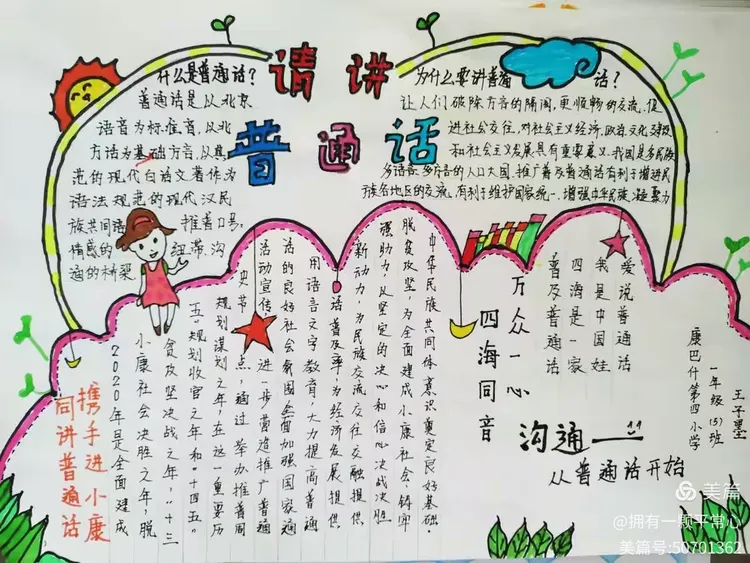 请讲
普通话
什么是普通话?
普通话是以北京
语音为标准音,以北
方话为基础方言,以典
范的现代白话文著作为
语法规范的现代汉民
族共同语
推普口号:
情感的
纽带,沟
通的桥梁
为什么要讲普通话?
让人们破除方言的隔阂,更顺畅的交流,促
进社会交往,对社会主义经济、政治、文化建设
和社会主义发展具有重要意义。我国是多民族
多语言、多方言的人口大国,推广普及普通话有利于增进民
族各地区的交流,有利于维护国家统一,增强中华民族凝聚力
携手进小康
同讲普通话
2020年是全面建成
小康社会决胜之年,脱
贫攻坚决战之年,“十三
五”规划收官之年和“十四五”
规划谋划之年,在这一重要历
史节点,通过举办推普周
活动宣传,进一步营造推广普通
话的良好社会氛围,全面加强国家通
用语言文字教育,大力提高普通
话普及率,为经济发展提供
新动力,为民族交流交往交融提供
强助力,以坚定的决心和信心决战决胜
脱贫攻坚,为全面建成小康社会,铸牢
中华民族共同体意识奠定良好基础。
万众一心
四海同音
爱说普通话
我是中国娃
四海是一家
普及普通话
沟通
从普通话开始
康巴什第四小学
一年级(5)班
王子墨
美篇
@拥有一颗平常心
美篇号:50701362